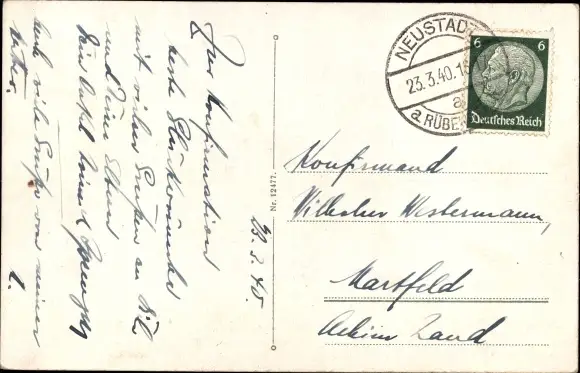 Zur Konfirmation
beste Glückwünsche
mit vielen Grüßen an Dich
und Deine Eltern
Dein Onkel Heine &
23.3.40.
Nr. 12477.
NEUSTADT
23.3.40.15
a
a. RÜBE
6 6
Deutsches Reich
Konfirmand
Wilhelm Westermann,
Martfeld